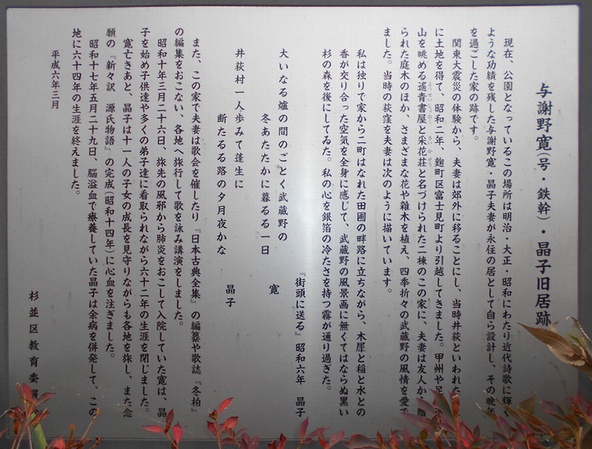 与謝野寛(号・鉄幹)・晶子旧居跡
現在、公園となっているこの場所は明治・大正・昭和にわたり近代詩歌に輝く
ような功績を残した与謝野寛・晶子夫妻が永住の居として自ら設計し、その晩年
を過ごした家の跡です。
関東大震災の体験から、夫妻は郊外に移ることにし、当時井荻といわれた
に土地を得て、昭和二年、麹町区富士見町より引越してきました。甲州や
山を眺める遥青書屋と采花荘と名づけられた二棟のこの家に、夫妻は友人から贈
られた庭木のほか、さまざまな花や雑木を植え、四季折々の武蔵野の風情を愛で
ました。当時の荻窪を夫妻は次のように描いています。
私は独りで家から二町はなれた田圃の畔路に立ちながら、木犀と稲と水との
香が交り合った空気を全身に感じて、武蔵野の風景画に無くてはならぬ黒い
杉の森を後にしてゐた。私の心を銀箔の冷たさを持つ霧が通り過ぎた。
『街頭に送る』昭和六年 晶子
大いなる爐の間のごとく武蔵野の
冬あたたかに暮るる一日 寛
井荻村一人歩みて蓬生に
断たるる路の夕月夜かな 晶子
また、この家で夫妻は歌会を催したり『日本古典全集』の編纂や歌誌『冬柏』
の編集をおこない、各地へ旅行して歌を詠み講演をしました。
昭和十年三月二十六日、旅先の風邪から肺炎をおこして入院していた寛は、晶
子を始め子供達や多くの弟子達に看取られながら六十二年の生涯を閉じました。
寛亡きあと、晶子は十一人の子女の成長を見守りながらも各地を旅し、また念
願の『新々訳 源氏物語』の完成(昭和十四年)に心血を注ぎました。
昭和十七年五月二十九日、脳溢血で療養していた晶子は余病を併発して、この
地に六十四年の生涯を終えました。
平成六年三月
杉並区教育委員